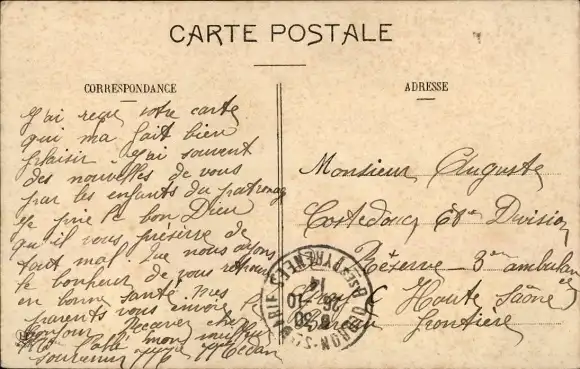 CARTE POSTALE
CORRESPONDANCE
J'ai reçu votre carte
qui ma fait bien
plaisir. J'ai souvent
des nouvelles de vous
par les enfants du patronage
Je prie le bon Dieu
qu'il vous préserve de
tout mal. Que nous ayons
le bonheur de vous
en bonne santé. Mes
parents vous envoie
bonjour. Recevez cher
mon meilleur
souvenir
ADRESSE
Monsieur Auguste
Costedoat Division
Réserve 3me ambulance
Haute Saône
frontière
OLORON-Ste-MARIE
Bses PYRENEES